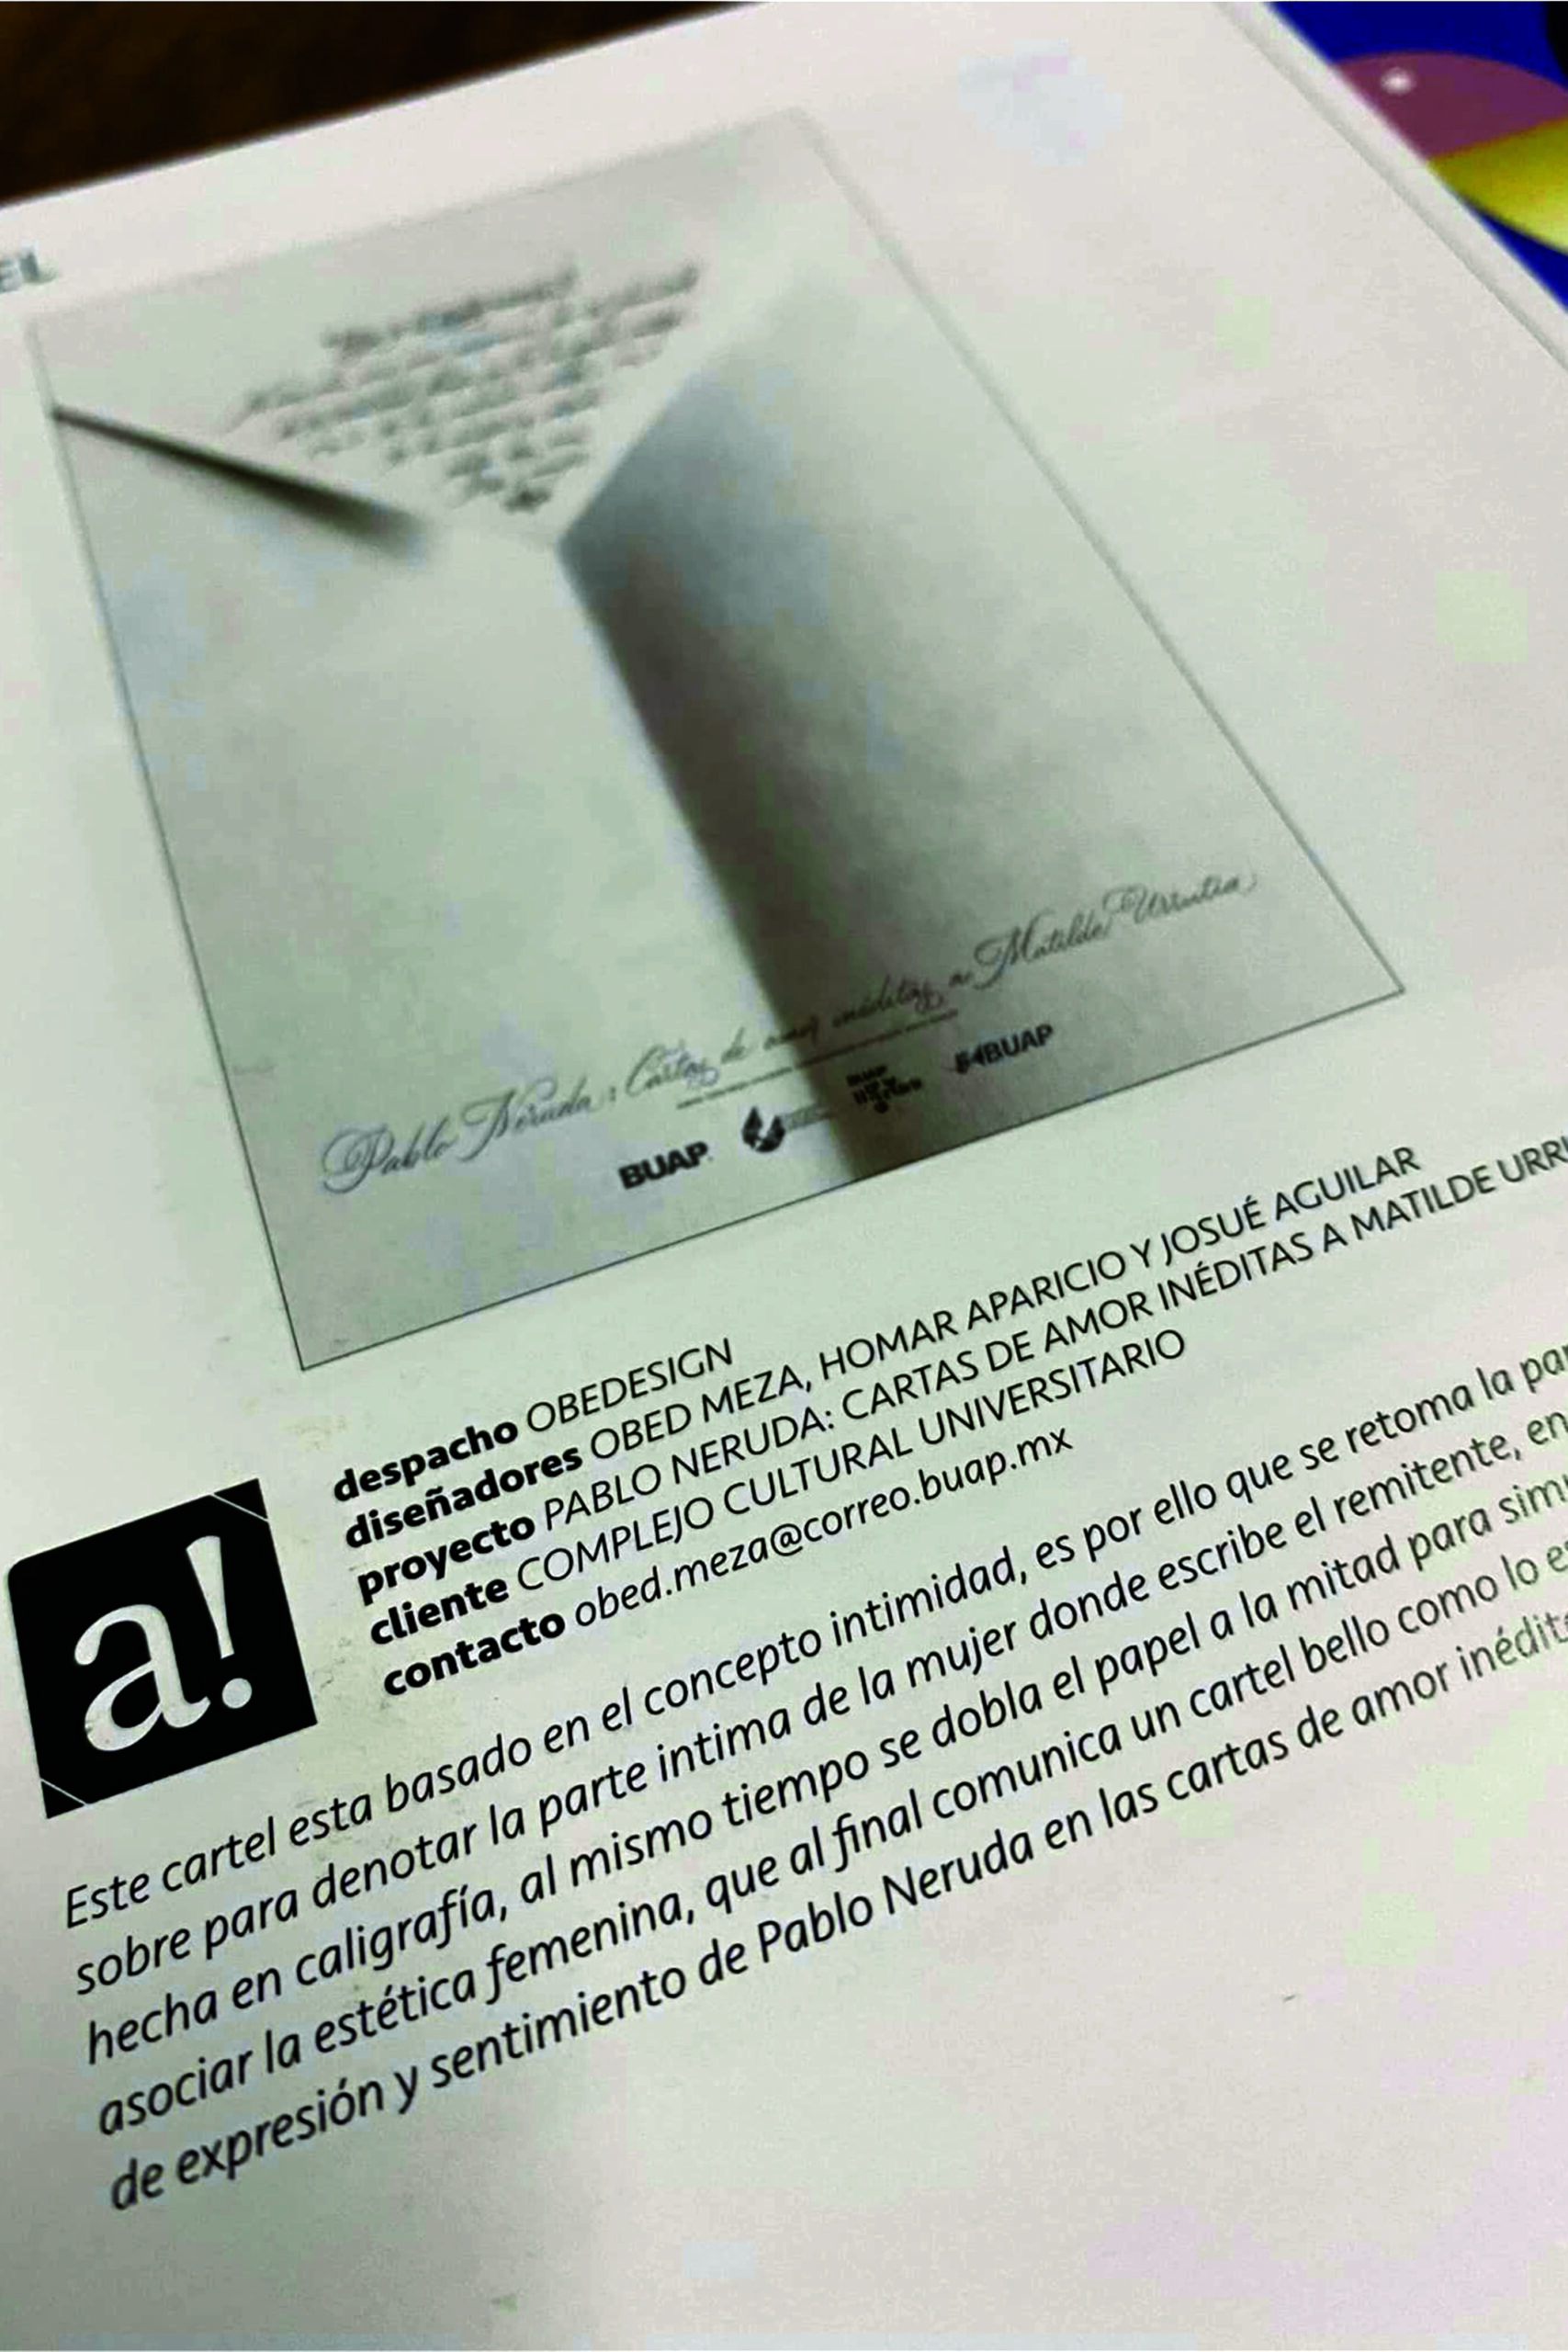 EL
Pablo Neruda: Cartas de amor inéditas a Matilde Urrutia
BUAP
BUAP
despacho OBEDESIGN
diseñadores OBED MEZA, HOMAR APARICIO Y JOSUÉ AGUILAR
proyecto PABLO NERUDA: CARTAS DE AMOR INÉDITAS A MATILDE URRU
cliente COMPLEJO CULTURAL UNIVERSITARIO
contacto obed.meza@correo.buap.mx
a!
Este cartel esta basado en el concepto intimidad, es por ello que se retoma la par
sobre para denotar la parte intima de la mujer donde escribe el remitente, en
hecha en caligrafía, al mismo tiempo se dobla el papel a la mitad para simu
asociar la estética femenina, que al final comunica un cartel bello como lo es
de expresión y sentimiento de Pablo Neruda en las cartas de amor inédita